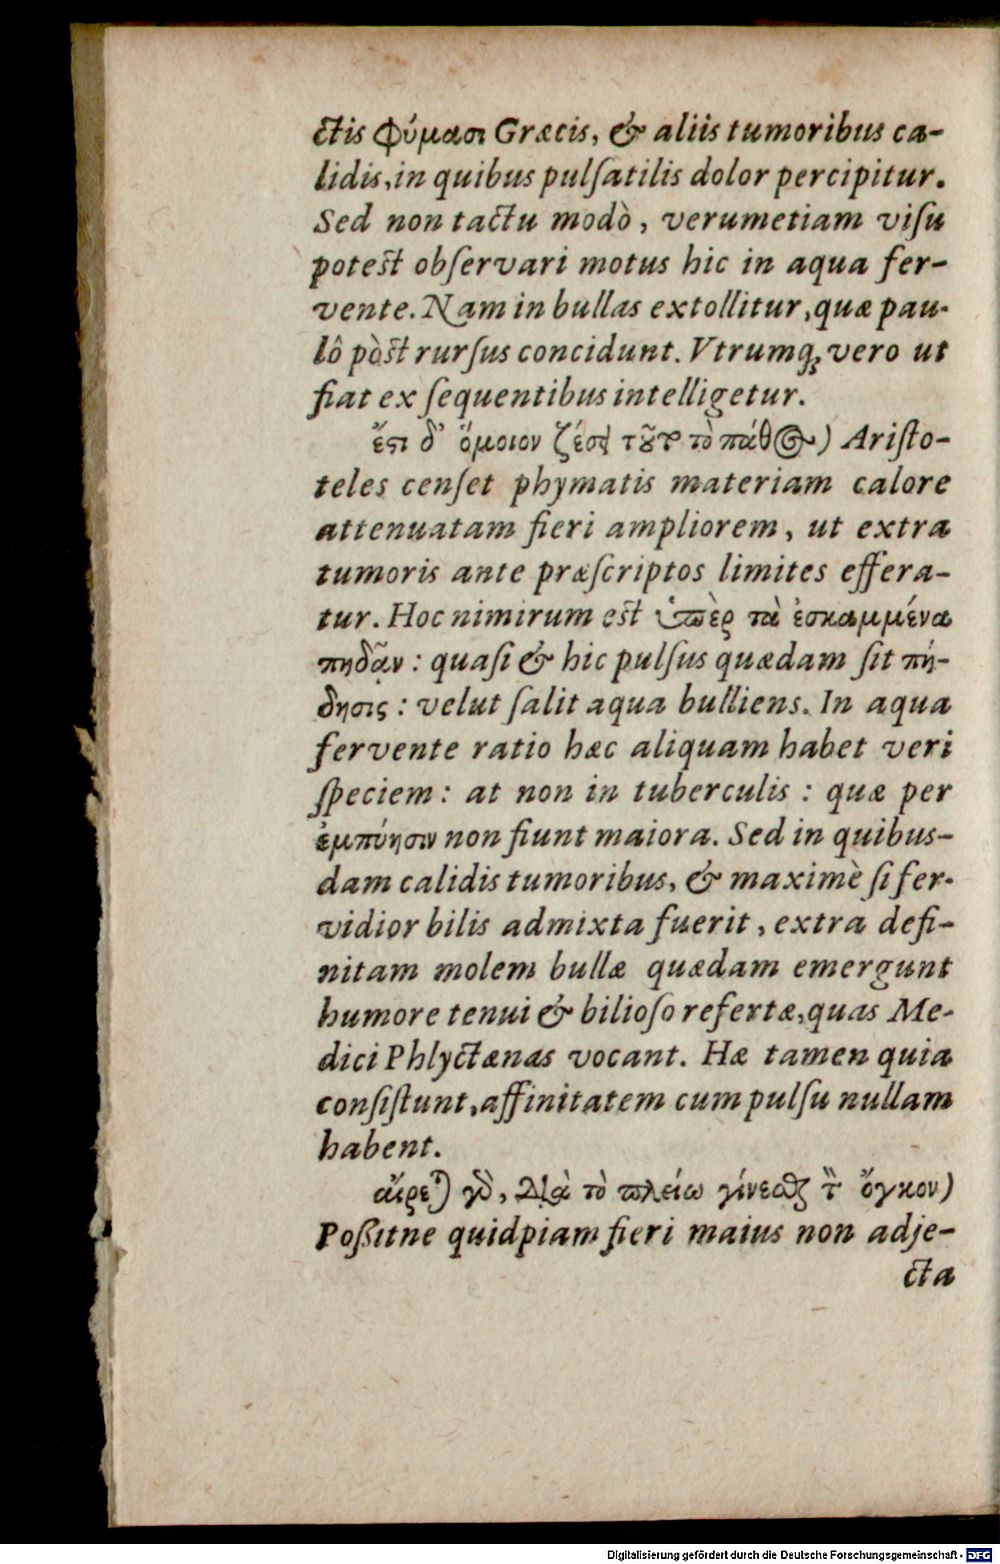 ctis φύμασι Græcis, & aliis tumoribus ca-
lidis, in quibus pulſatilis dolor percipitur.
Sed non tactu modò, verumetiam viſu
poteſt obſervari motus hic in aqua fer-
vente. Nam in bullas extollitur, quæ pau-
lò pòſt rurſus concidunt. Vtrumq; vero ut
fiat ex ſequentibus intelligetur.
ἔστι δ' ὅμοιον ζέσει τοῦτο τὸ πάθος) Ariſto-
teles cenſet phymatis materiam calore
attenuatam fieri ampliorem, ut extra
tumoris ante præſcriptos limites effera-
tur. Hoc nimirum eſt ὑπὲρ τὰ ἐσκαμμένα
πηδᾶν : quaſi & hic pulſus quædam ſit πή-
δησις : velut ſalit aqua bulliens. In aqua
fervente ratio hæc aliquam habet veri
ſpeciem : at non in tuberculis : quæ per
ἐμπύησιν non fiunt maiora. Sed in quibus-
dam calidis tumoribus, & maximè ſi fer-
vidior bilis admixta fuerit, extra defi-
nitam molem bullæ quædam emergunt
humore tenui & bilioſo refertæ, quas Me-
dici Phlyctænas vocant. Hæ tamen quia
conſiſtunt, affinitatem cum pulſu nullam
habent.
αἴρεται γὰρ, διὰ τὸ πλείω γίνεσθαι τὸν ὄγκον)
Poßitne quidpiam fieri maius non adje-
cta
Digitalisierung gefördert durch die Deutsche Forschungsgemeinschaft - DFG